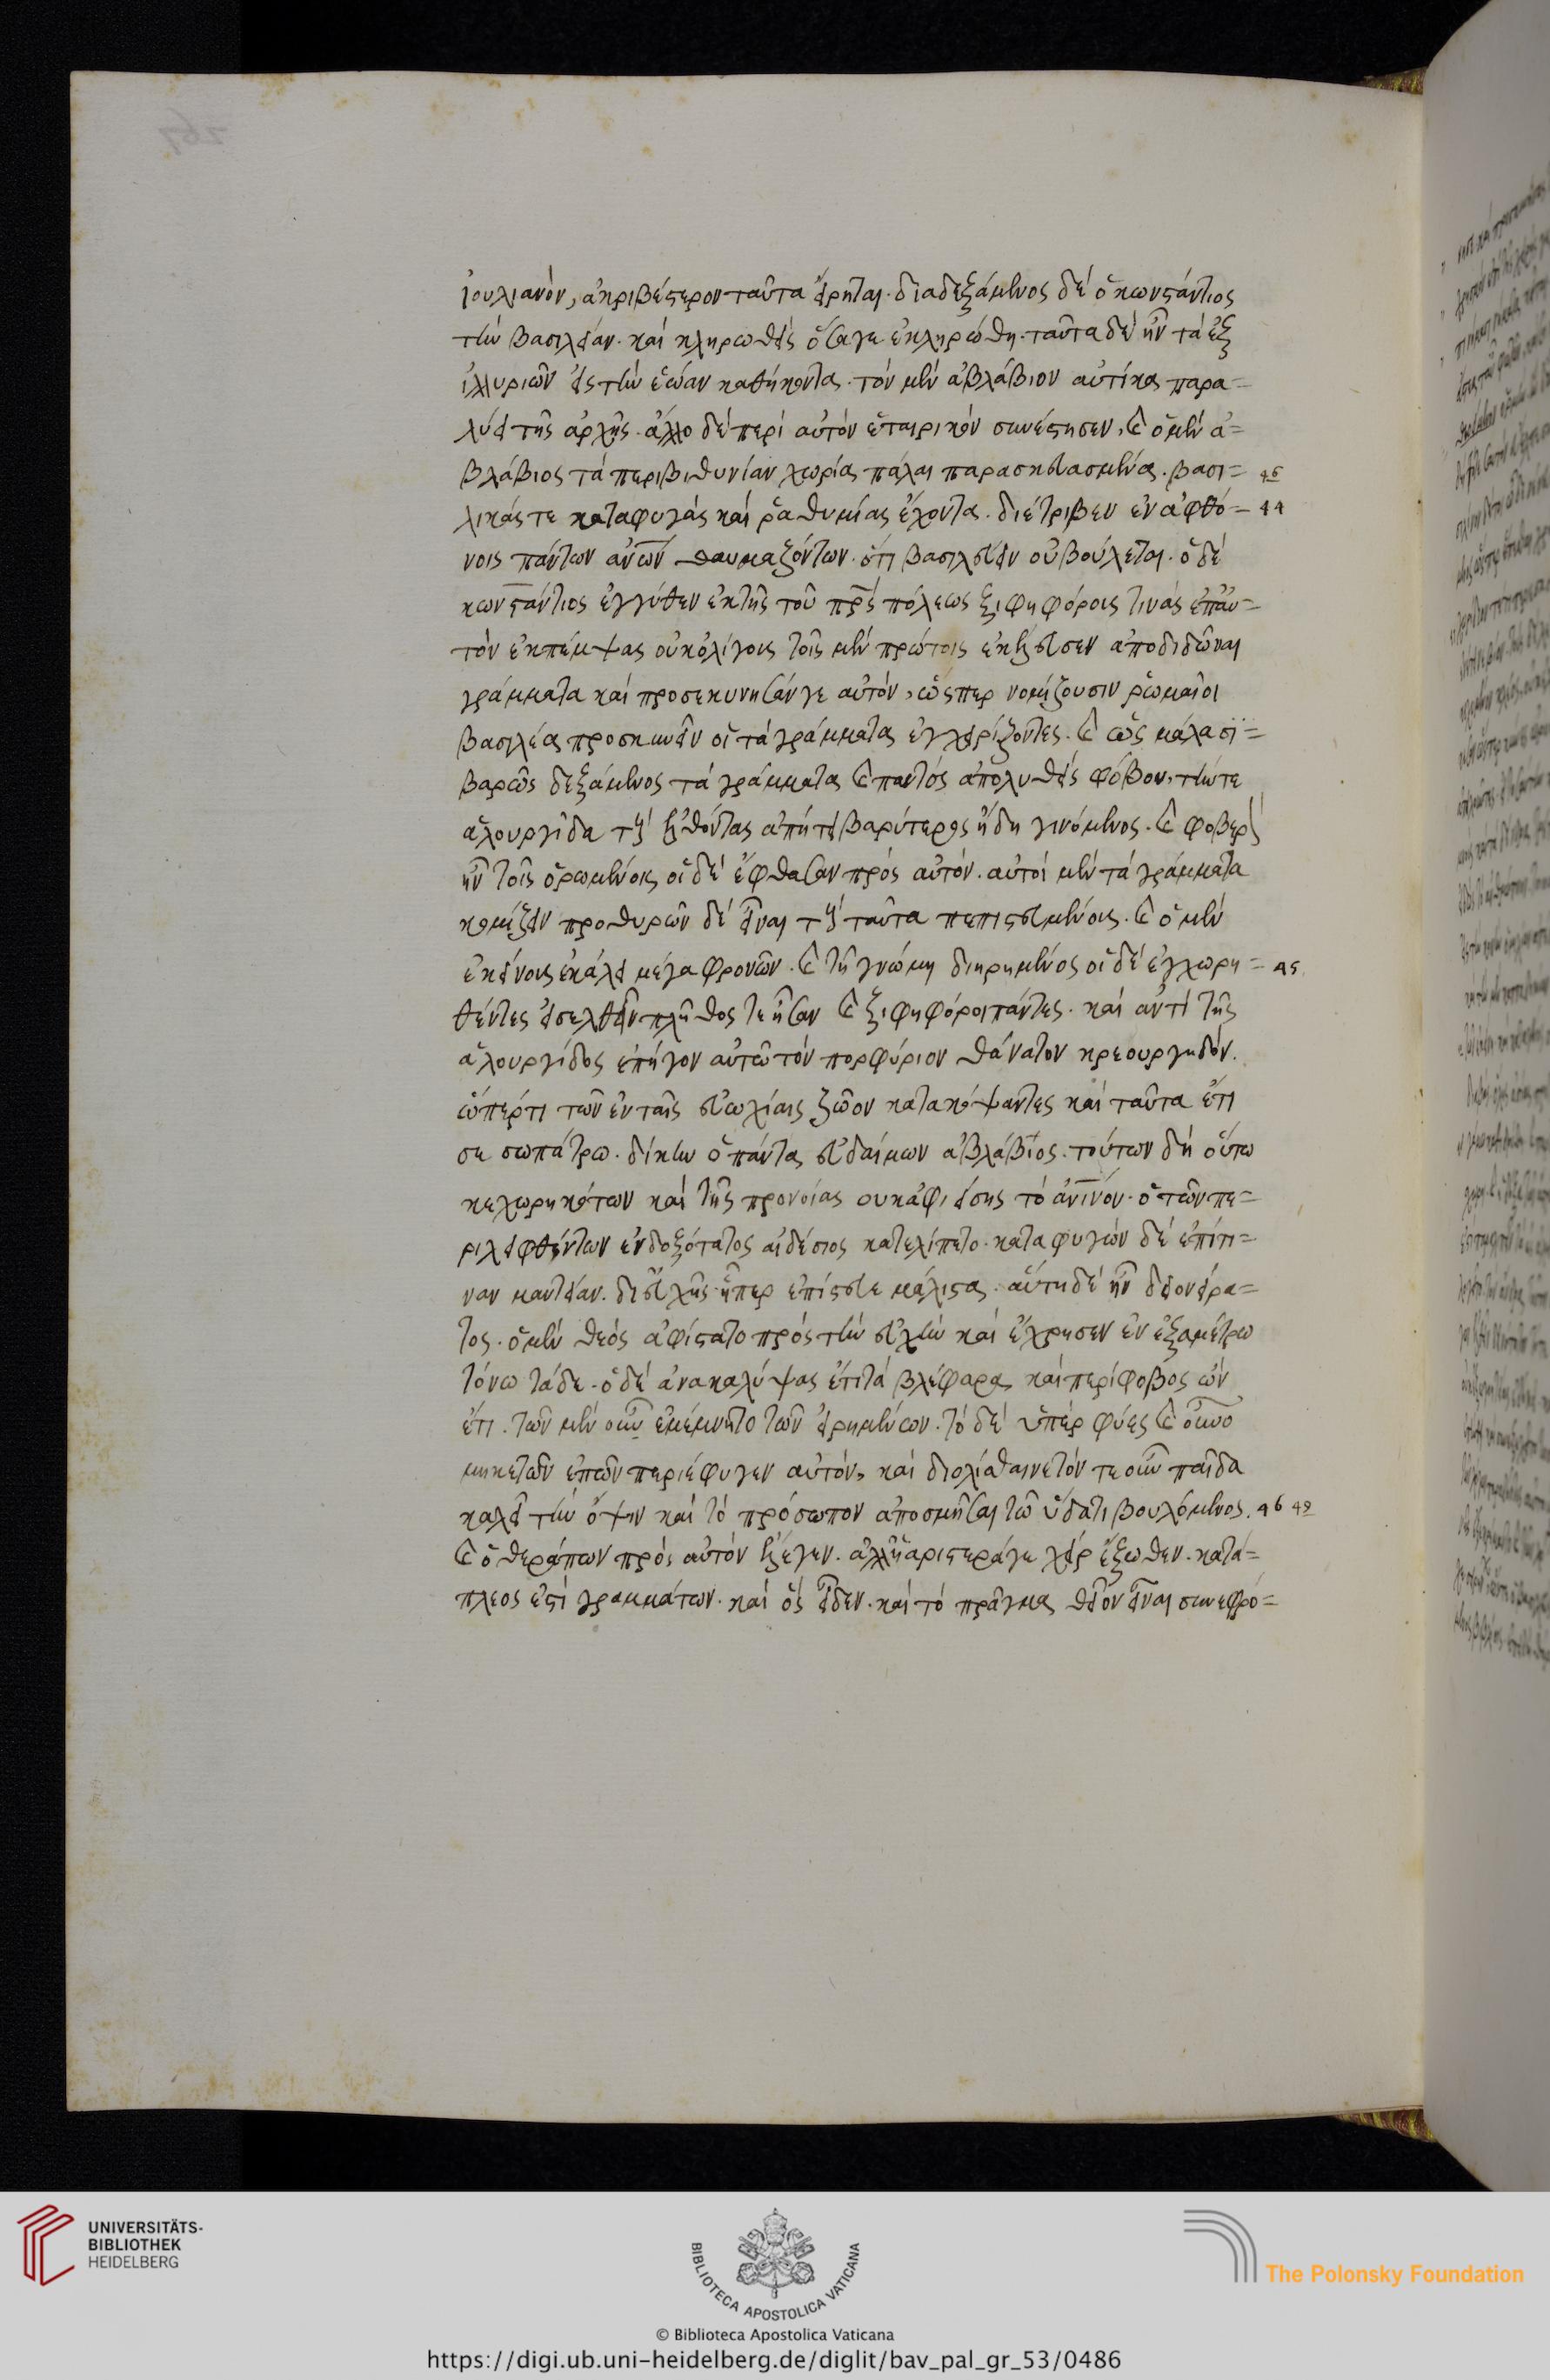 ἰουλιανόν, ἀκριβέστερον ταῦτα εἴρηται. διαδεξάμενος δέ ὁ κωνστάντιος
τὴν βασιλείαν. καί κληρωθείς ὅσαγε ἐκληρώθη. ταῦτα δέ ἦν τά ἐξ
ἰλλυριῶν εἰς τὴν ἑώαν καθήκοντα. τόν μέν ἀβλάβιον αὐτίκα παρα=
λύει τῆς ἀρχῆς. ἄλλο δέ περί αὐτόν ἑταιρικόν συνέστησεν, καὶ ὁ μέν ἀ=
βλάβιος τά περι βιθυνίαν χωρία πάλαι παρασκευασμένα. βασι= 45
λικάς τε καταφυγάς καί ῥαθυμίας ἔχοντα. διέτριβεν ἐν ἀφθό= 44
νοις πάντων ἀνων θαυμαζόντων. ὅτι βασιλεύειν οὐ βούλεται. ὁ δέ
κωνστάντιος ἐγγύθεν ἐκ τῆς τοῦ πρς πόλεως ξιφηφόροις τινάς ἐπ' αὐ=
τόν ἐκπέμψας οὐκ ὀλίγοις τοῖς μέν πρώτοις ἐκέλευσεν ἀποδιδῶναι
γράμματα καί προσεκυνησάν γε αὐτόν, ὥσπερ νομίζουσιν ῥωμαῖοι
βασιλέα προσκυνεῖν οἱ τά γράμματα ἐγχειρίζοντες. καὶ ὥς μάλα σϊ=
βαρῶς δεξάμενος τά γράμματα καὶ παντός ἀπολυθείς φόβου, τήν τε
ἁλουργίδα τούς ἐλθόντας ἀπήτει βαρύτερος ἤδη γινόμενος. καὶ φοβερός
ἦν τοῖς ὁρωμένοις οἱ δέ ἔφθασαν πρός αὐτόν. αὐτοί μέν τά γράμματα
κομίζειν προθυρῶν δέ εἶναι τούς ταῦτα πεπιστευμένοις. καὶ ὁ μέν
ἐκείνοις ἐκάλει μέγα φρονῶν. καὶ τῇ γνώμῃ διηρημένος οἱ δέ ἐγχωρη= 45
θέντες εἰσελθεῖν πλῆθος τε ἦσαν καὶ ξιφηφόροι πάντες. καί ἀντί τῆς
ἁλουργίδος ἐπῆγον αὐτῶ τόν πορφύριον θάνατον κρεουργηδόν.
ὥπέρτι τῶν ἐν ταῖς εὐωχίαις ζῶον κατακόψαντες καί ταῦτα ἔτι
σε σωπάτρω. δίκην ὁ πάντα εὐδαίμων ἀβλάβϊος. τούτων δή οὕτω
κεχωρηκότων καί τῆς προνοίας οὐκ ἀφιείσης τό ἀνινον. ὁ τῶν πε=
ριλειφθέντων ἐνδοξότατος αἰδέσιος κατελίπετο. καταφυγών δέ ἐπίτι=
ναν μαντείαν. δι εὐχῆς ᾗπερ ἐπίστευε μάλιστα. αὕτη δέ ἦν δι ὀνείρα=
τος. ὁ μέν θεός ἀφίστατο πρός τήν εὐχήν καί ἔχρησεν ἐν ἑξαμέτρω
τόνω τάδε. ὁ δέ ἀνακαλύψας ἔτι τά βλέφαρα καί περίφοβος ὤν
ἔτι. τῶν μέν οὖν ἐμέμνητο τῶν εἰρημένων. τό δέ ὑπέρ φύες καὶ οὐνο
μηκετῶν ἐπῶν περιέφυγεν αὐτόν, καί διολίαθαινετόν τε οὖν παῖδα
καλεῖ τήν ὄψιν καί τό πρόσωπον ἀποσμῆσαι τῶ ὕδατι βουλόμενος. 46 42
καὶ ὁ θεράπων πρός αὐτόν ἔλεγεν. ἀλλ' ἡ ἀριστεράγε χείρ ἔξωθεν. κατά=
πλεος ἐστί γραμμάτων. καί ὅς εἶδεν. καί τό πρᾶγμα θεῖον εἶναι συνεφρό=
UNIVERSITÄTS-
BIBLIOTHEK
HEIDELBERG
BIBLIOTECA APOSTOLICA VATICANA
The Polonsky Foundation
© Biblioteca Apostolica Vaticana
https://digi.ub.uni-heidelberg.de/diglit/bav_pal_gr_53/0486